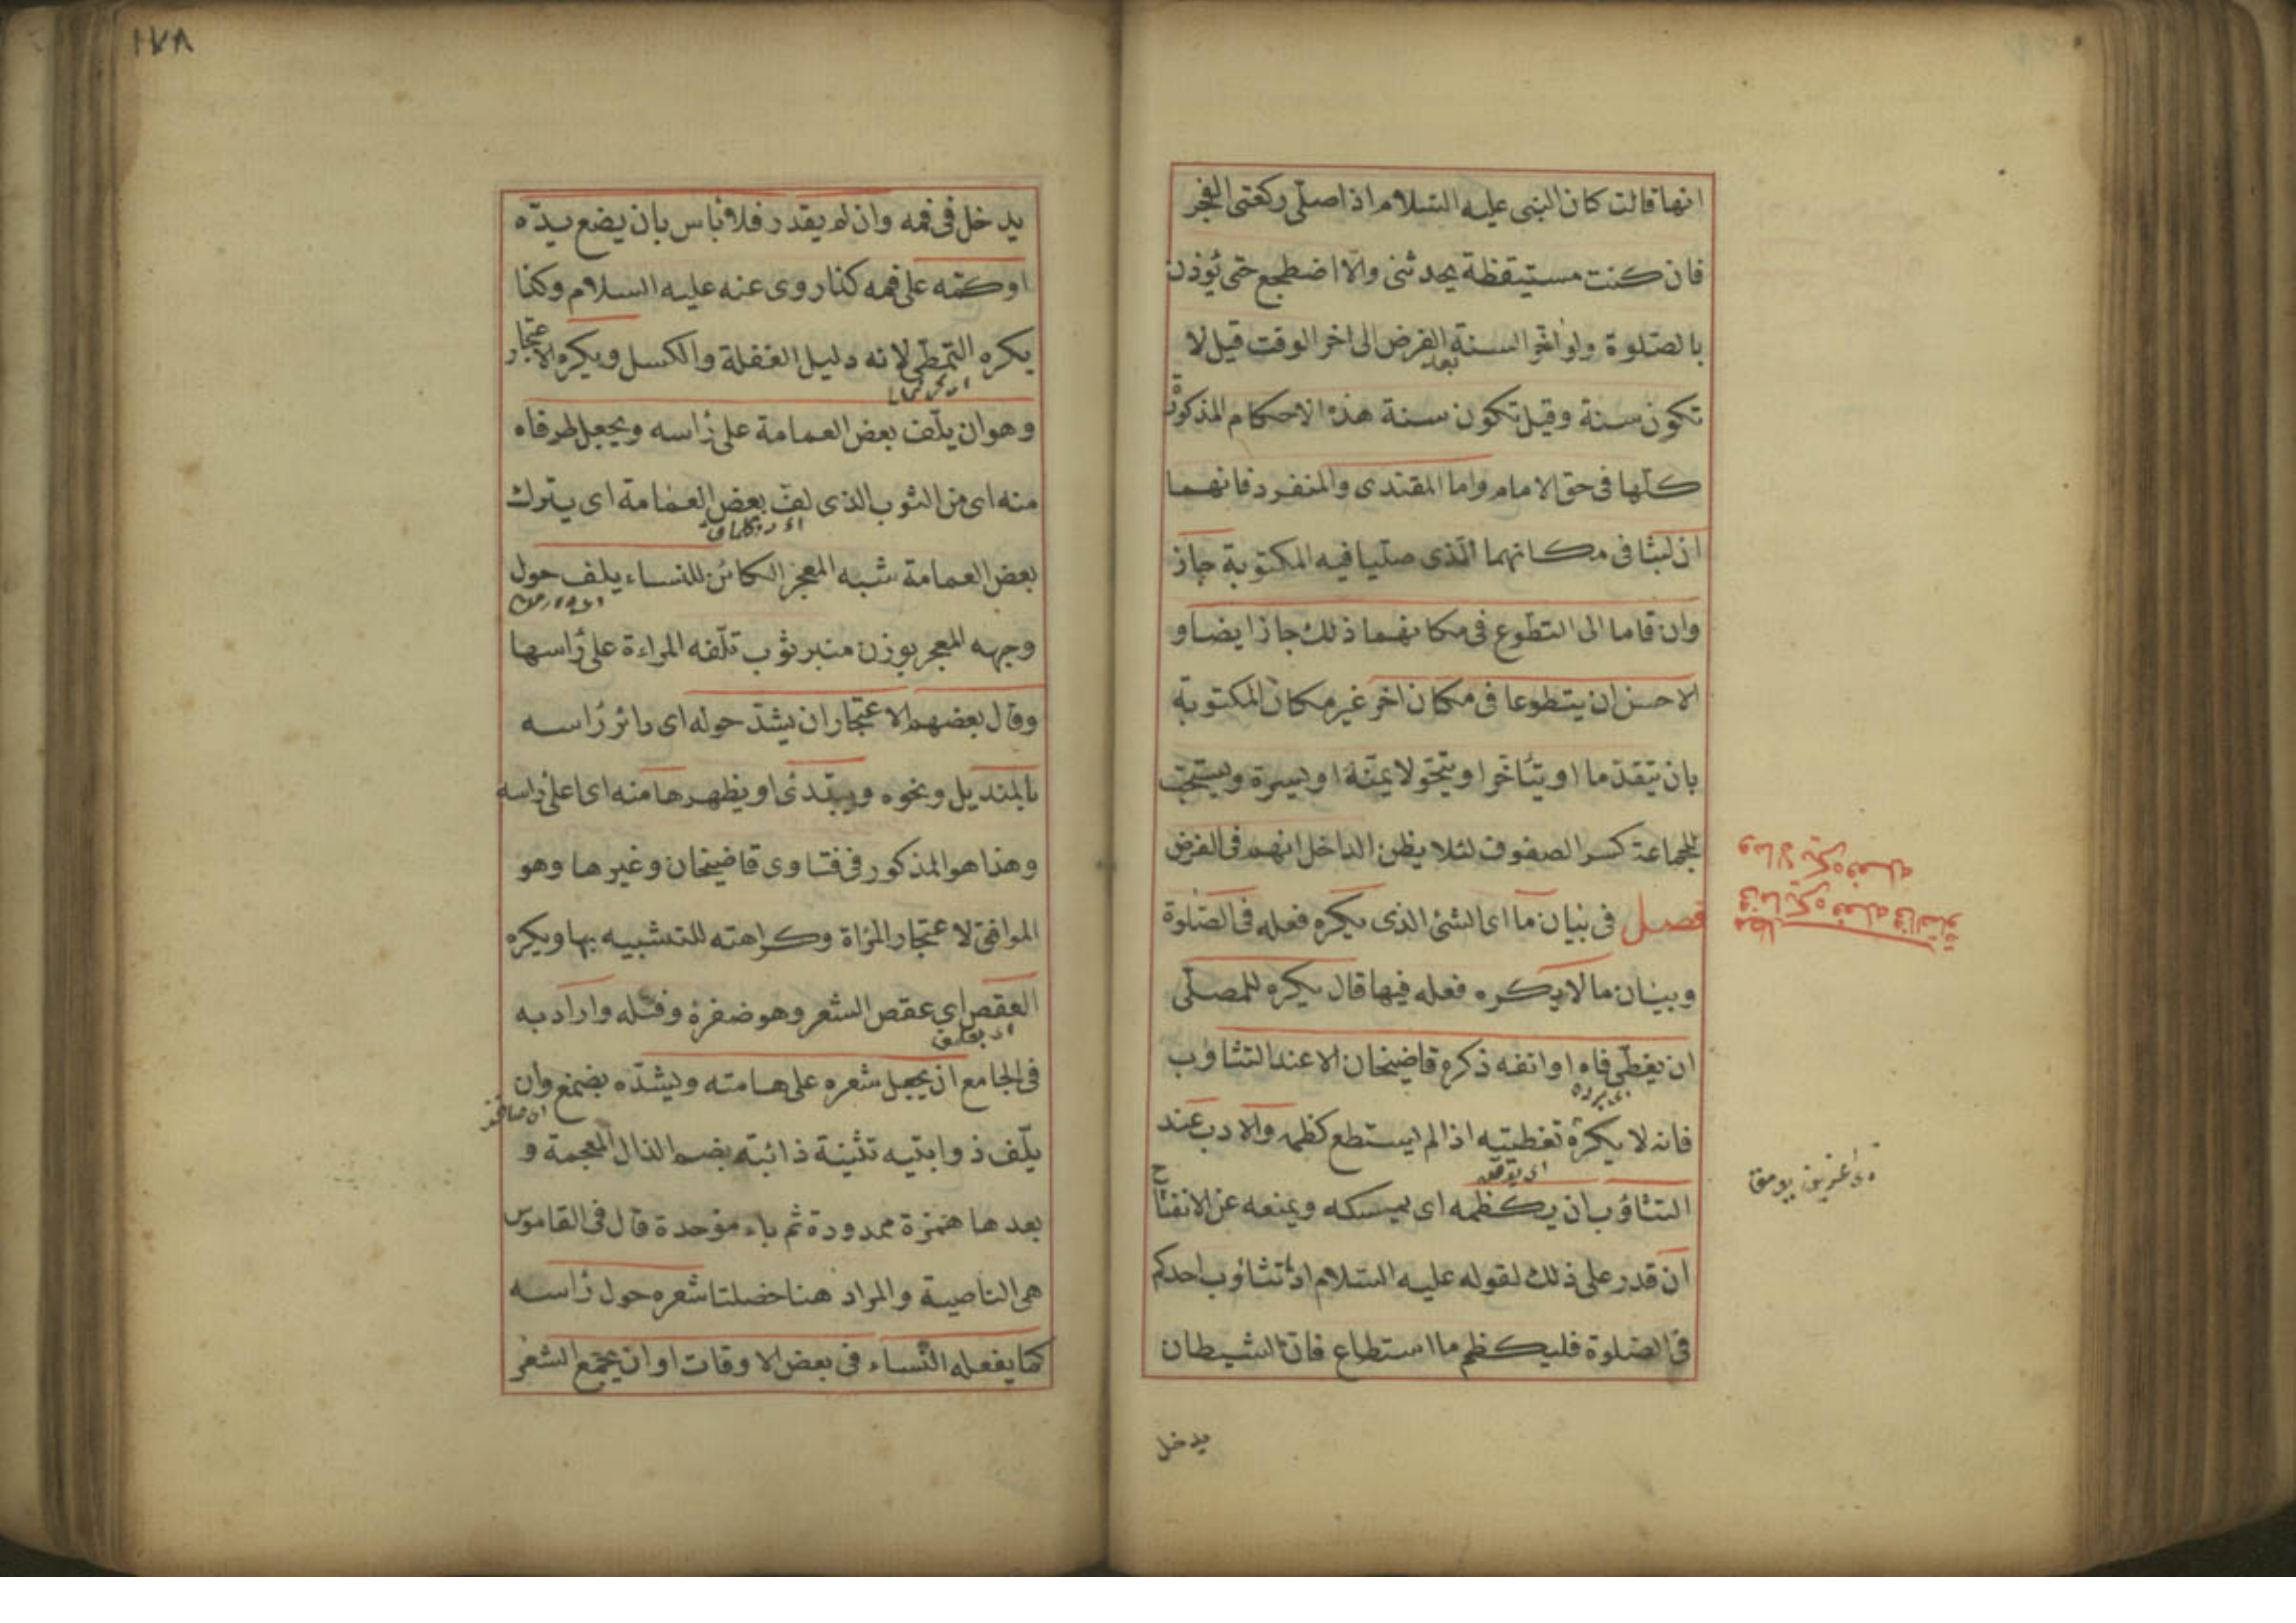 انها قالت كان النبى عليه السّلام اذا صلّى ركعتى الفجر
فان كنت مستيقظة يحدثنى والّا اضطجع حتى يُؤذن
بالصّلوة ولو اخّر السنة بعد الفرض الى اخر الوقت قيل لا
تكون سنة وقيل تكون سنة هذه الاحكام المذكورة
كلّها فى حق الامام واما المقتدى والمنفرد فانهما
ان لبثا فى مكانهما الّذى صلّيا فيه المكتوبة جاز
وان قاما الى التطوع فى مكانهما ذلك جاز ايضا و
الاحسن ان يتطوعا فى مكان اخر غير مكان المكتوبة
بان يتقدّما او يتأخّرا او يتحّولا يمنة او يسرة ويستحب
للجماعة كسر الصفوف لئلا يظن الداخل انهم فى الفرض
فصل فى بيان ما اى الشئ الذى يكره فعله فى الصّلوة
وبيان ما لا يكره فعله فيها قال يكره للمصلّى
ان يغطّى فاه او انفه ذكره قاضيخان الا عند التثاؤب
فانه لا يكره تغطيته اذا لم يستطع كظمه والادب عند
التثاؤب ان يكظمه اى يمسكه ويمنعه عن الانفتاح
ان قدر على ذلك لقوله عليه السّلام اذا تثاؤب احدكم
فى الصّلوة فليكظم ما استطاع فانّ الشيطان
يدخل
مطلب فيما يكره فعله فى الصلوة
وما لا يكره فعله
١٧٨
يدخل فى فمه وان لم يقدر فلا بأس بان يضع يدّه
او كمّه على فمه كذا روى عنه عليه السلام وكذا
يكره التمطّى لانه دليل الغفلة والكسل ويكره الاعتجار
وهو ان يلّف بعض العمامة على رأسه ويجعل طرفاه
منه اى من الثوب الذى لفّ بعض العمامة اى يترك
بعض العمامة شبه المعجز الكائن للنساء يلف حول
وجهه المعجر بوزن منبر ثوب تلّفه المراءة على رأسها
وقال بعضهم الاعتجار ان يشدّ حوله اى دائر رأسه
بالمنديل ونحوه ويبّدئ او يظهر هامنه اى اعلى رأسه
وهذا هو المذكور فى فتاوى قاضيخان وغيرها وهو
الموافق لاعتجار المرأة وكراهته للتشبيه بها ويكره
العقص اى عقص الشعر وهو ضفرة وفتله واراد به
فى الجامع ان يجعل شعره على هامته ويشدّه بصمغ وان
يلّف ذوابتيه تثنية ذائبة بضم الذال المعجمة و
بعدها همزة ممدودة ثم باء موّحدة قال فى القاموس
هى الناصية والمراد هنا خصلتا شعره حول رأسه
كما يفعله النّساء فى بعض الاوقات او ان يجمع الشعر